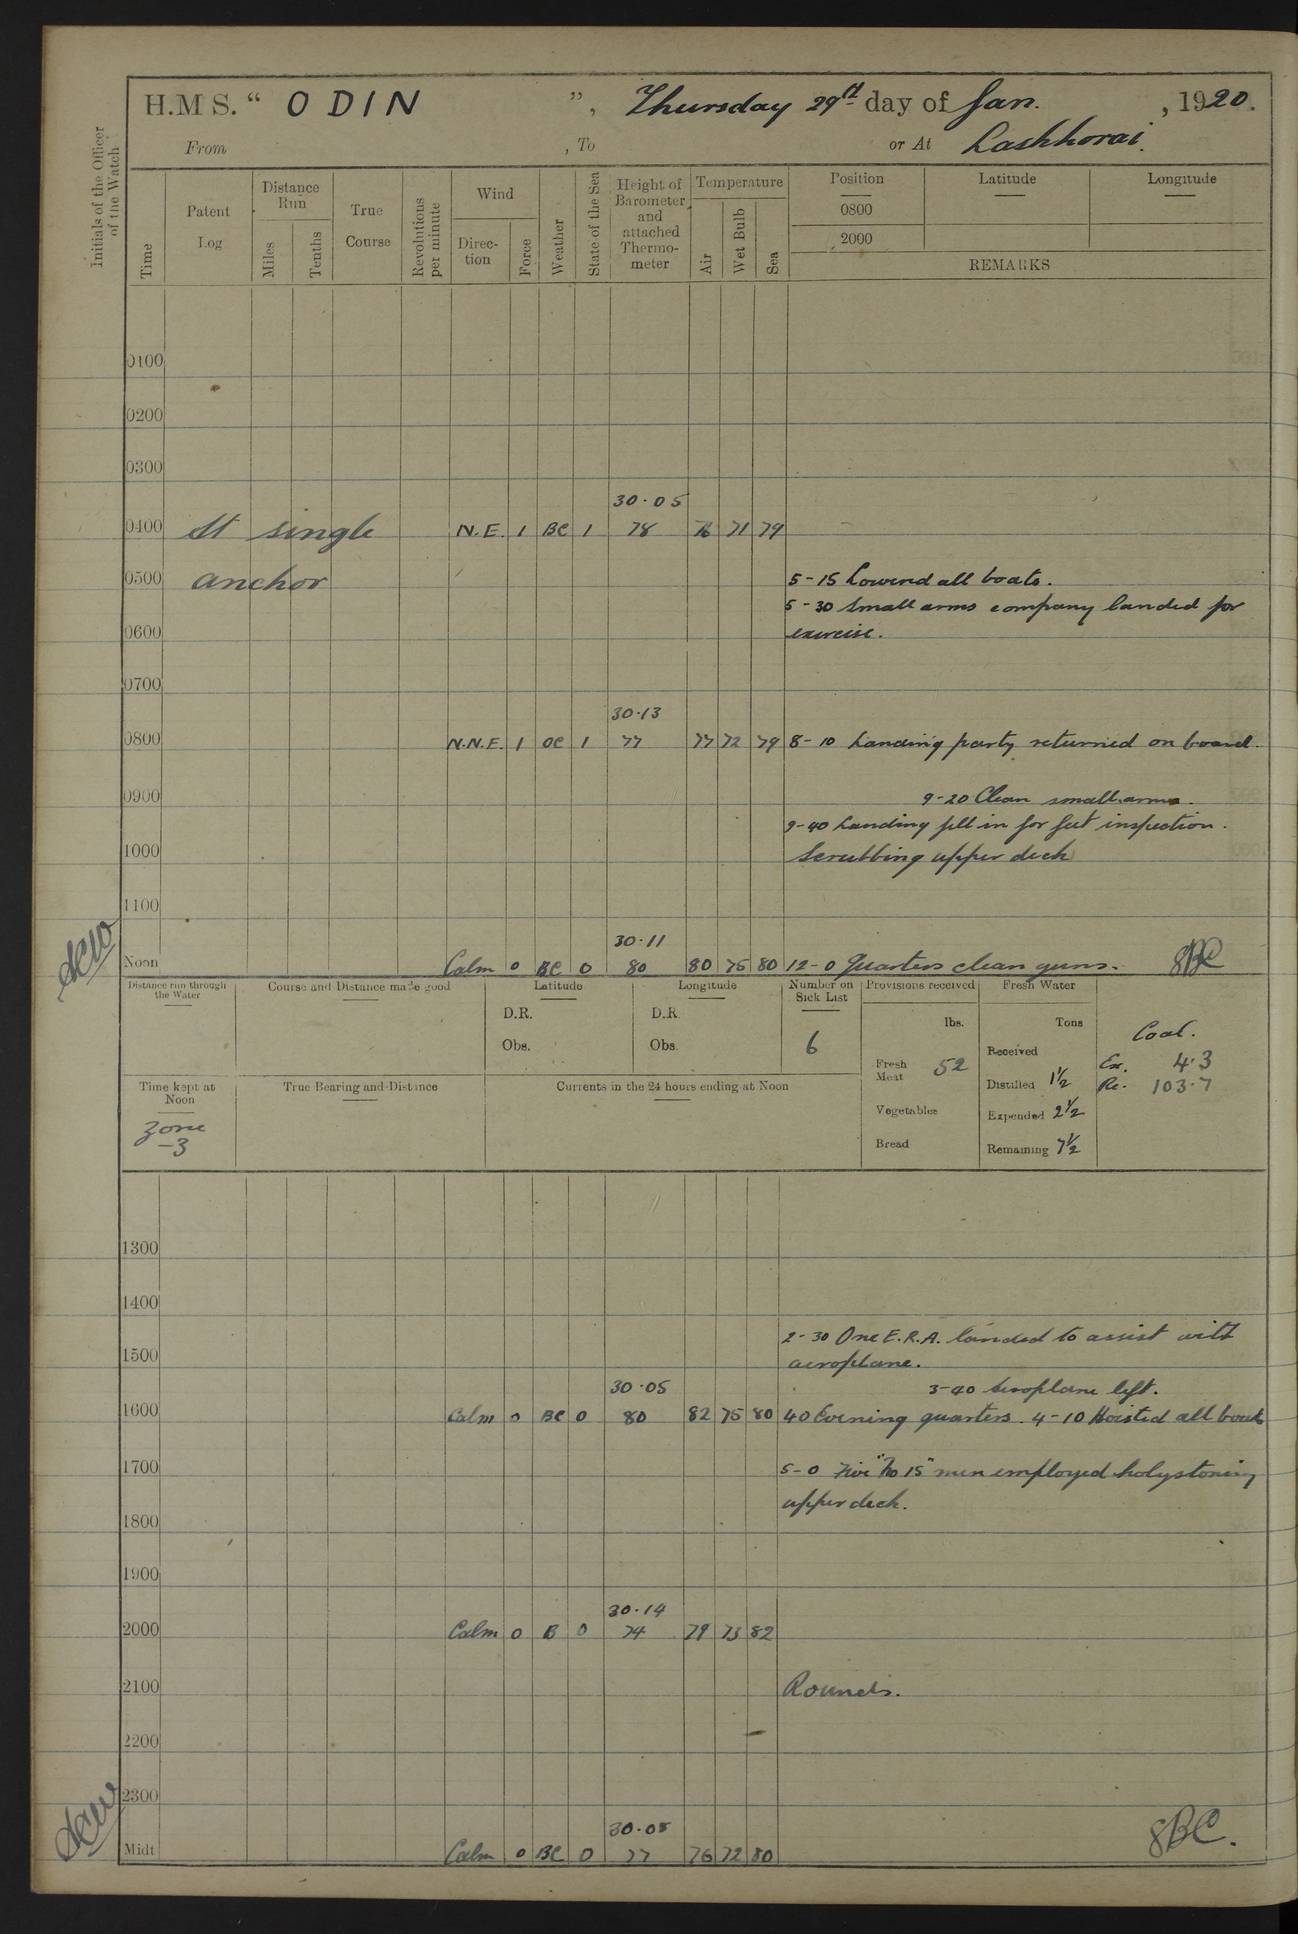 H.M S. “ ODIN ”, Thursday 29th day of Jan. , 1920.
From , To or At Lashhorai.
Initials of the Officer of the Watch
Time Patent Log Distance Run Miles Tenths True Course Revolutions per minute Wind Direc-tion Force Weather State of the Sea Height of Barometer and attached Thermo-meter Temperature Air Wet Bulb Sea
Position Latitude Longitude
0800
2000
REMARKS
0100
0200
0300
30.05
0400 At single N.E. 1 BC 1 78 76 71 79
0500 anchor 5-15 Lowered all boats.
5-30 Small arms company landed for
0600 exercise.
0700
30.13
0800 N.N.E. 1 OC 1 77 77 72 79 8-10 Landing party returned on board.
0900 9-20 Clean small arms.
9-40 Landing fell in for feet inspection.
1000 Scrubbing upper deck
1100
30.11
Noon Calm 0 BC 0 80 80 75 80 12-0 Quarters clean guns.
Distance run through the Water
Course and Distance made good
Latitude
D.R.
Obs.
Longitude
D.R.
Obs.
Number on Sick List
6
Provisions received
lbs.
Fresh Meat 52
Vegetables
Bread
Fresh Water
Tons
Received
Distilled 1½
Expended 2½
Remaining 7½
Coal.
Ex. 4.3
Re. 103.7
Time kept at Noon
Zone
-3
True Bearing and Distance
Currents in the 24 hours ending at Noon
1300
1400
2-30 One E.R.A. landed to assist with
1500 aeroplane.
30.05 3-40 Aeroplane left.
1600 Calm 0 BC 0 80 82 75 80 40 Evening quarters. 4-10 Hoisted all boats
1700 5-0 Five "No 15" men employed holystoning
upper deck.
1800
1900
30.14
2000 Calm 0 B 0 74 79 73 82
2100 Rounds.
2200
2300
30.08
Midt Calm 0 BC 0 77 76 72 80